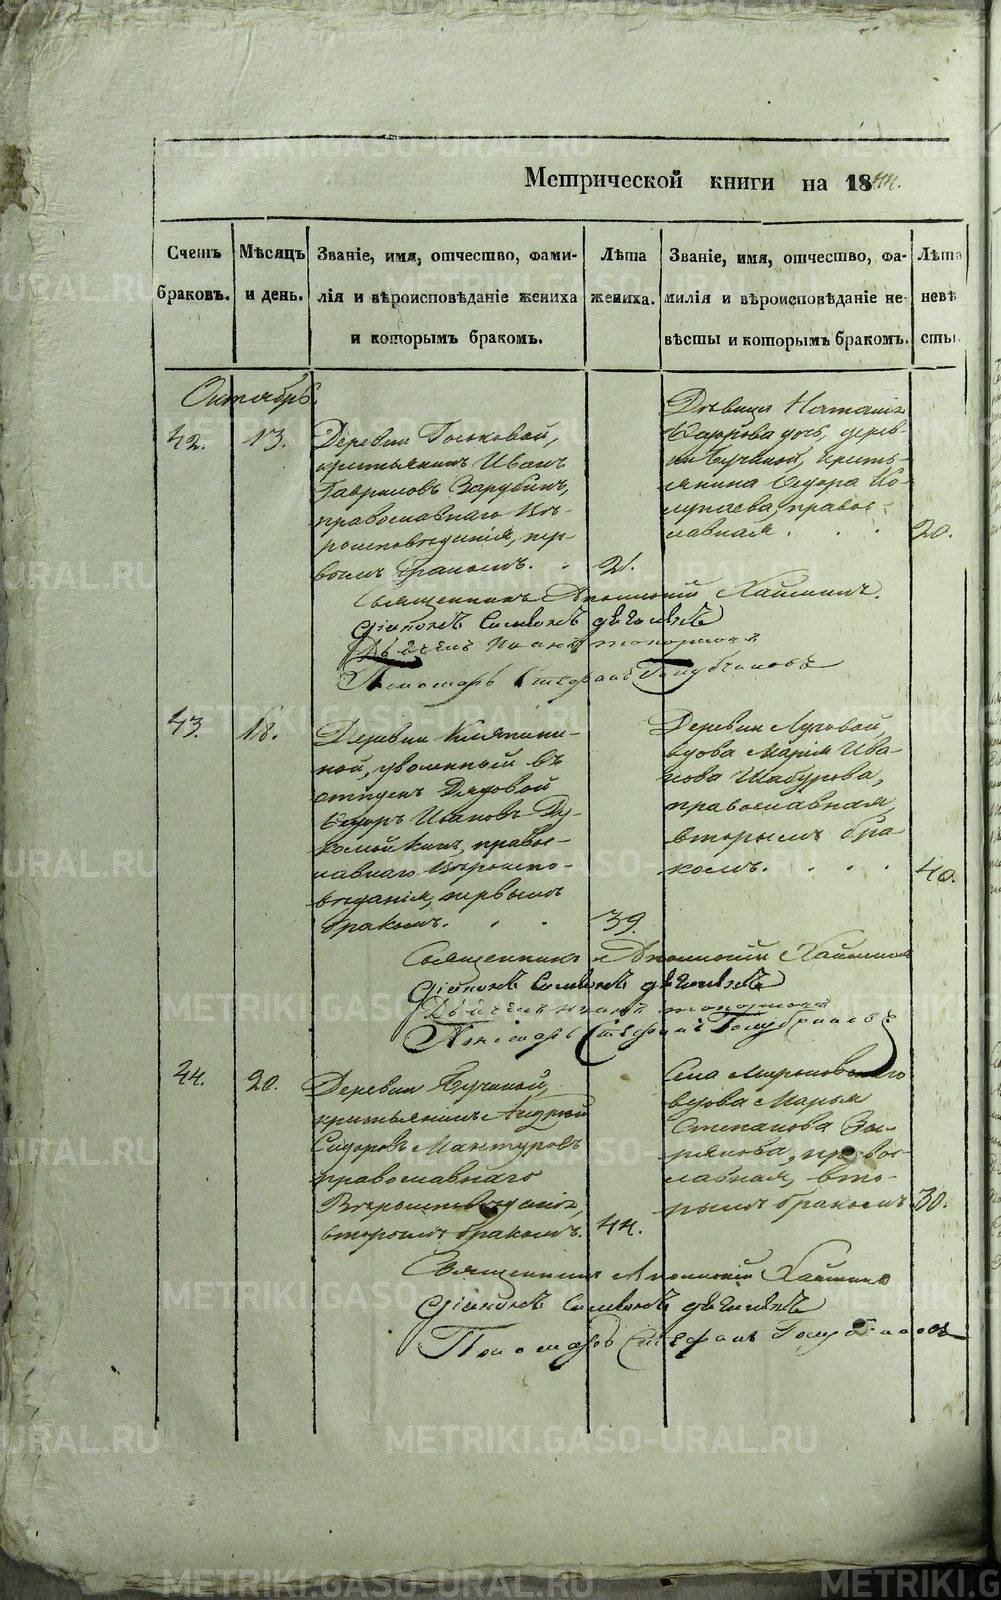 Метрической книги на 1844.
Счетъ браковъ.
Мѣсяцъ и день.
Званіе, имя, отчество, фами-
лія и вѣроисповѣданіе жениха
и которымъ бракомъ.
Лѣта
жениха.
Званіе, имя, отчество, фа-
милія и вѣроисповѣданіе не-
вѣсты и которымъ бракомъ.
Лѣта
невѣ
сты.
Октябрь
42. 13.
Деревни
крестьянинъ Иванъ
Гавриловъ Зарубинъ,
православнаго вѣ-
роисповѣданія, пер-
вымъ бракомъ. 21.
Дѣвица Наталія
Ѳедорова дочь, дерев-
ни Бучиной, кресть-
янина Ѳедора
православ-
ная 20.
Священникъ Аполлоній
Діаконъ Симеонъ
Дьячекъ
Пономарь Стефанъ Голубчиковъ
43. 18.
Деревни
ной, уволенный въ
отпускъ рядовой
Ѳедоръ Ивановъ
православ-
наго вѣроиспо-
вѣданія, первымъ
бракомъ. 39.
Деревни Луговой,
вдова Марія Ива-
нова Шабурова,
православная,
вторымъ бра-
комъ. 40.
Священникъ Аполлоній
Діаконъ Симеонъ
Дьячекъ
Пономарь Стефанъ Голубчиковъ
44. 20.
Деревни Бучиной,
крестьянинъ Андрей
Сидоровъ Мантуровъ
православнаго
вѣроисповѣданія,
вторымъ бракомъ. 44.
Села Мироновскаго
вдова Марья
Степанова Зы-
рянова, правос-
лавная, вто-
рымъ бракомъ 30.
Священникъ Аполлоній
Діаконъ Симеонъ
Пономарь Стефанъ Голубчиковъ
METRIKI.GASO-URAL.RU